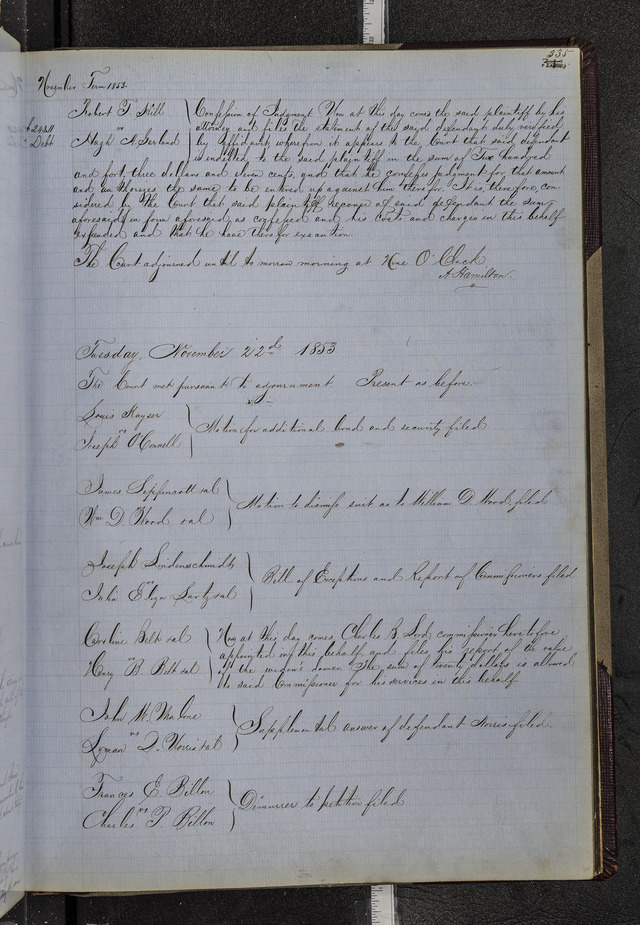 335
November Term 1853
Robert T. Hill
vs
Hugh A. Garland
Debt
Confession of Judgment Now at this day comes the said plaintiff by his
attorney and files the statement of the said defendant duly verified
by affidavit, wherefrom it appears to the Court that said defendant
is indebted to the said plaintiff in the sum of Two hundred
and forty three dollars and eleven cents, and that he confesses judgment for that amount
and authorizes the same to be entered up against him therefor. It is, therefore, con-
sidered by the Court that said plaintiff recover of said defendant the sum
aforesaid in form aforesaid as confessed and his costs and charges in this behalf
expended and that he have therefor execution.
The Court adjourned until to morrow morning at Nine O'Clock
A. Hamilton
Tuesday, November 22d 1853
The Court met pursuant to adjournment Present as before.
Louis Kayser
vs
Joseph O'Connell
Motion for additional bond and security filed
James Lippincott et al
vs
Wm D. Wood et al
Motion to dismiss suit as to William D. Wood filed
Joseph Lindenschmidt
vs
John et al
Bill of Exceptions and Report of Commissioners filed
Caroline Belt et al
vs
Henry B. Belt et al
Now at this day comes, Charles B. Lord commissioner heretofore
appointed in this behalf, and files his report of the value
of the widow's dower. The sum of twenty dollars is allowed
to said Commissioner for his services in this behalf.
John M.
vs
Lyman D. Norris et al
Supplemental answer of defendant Norris filed.
Frances E. Billon
vs
Charles P. Billon
Demurrer to petition filed